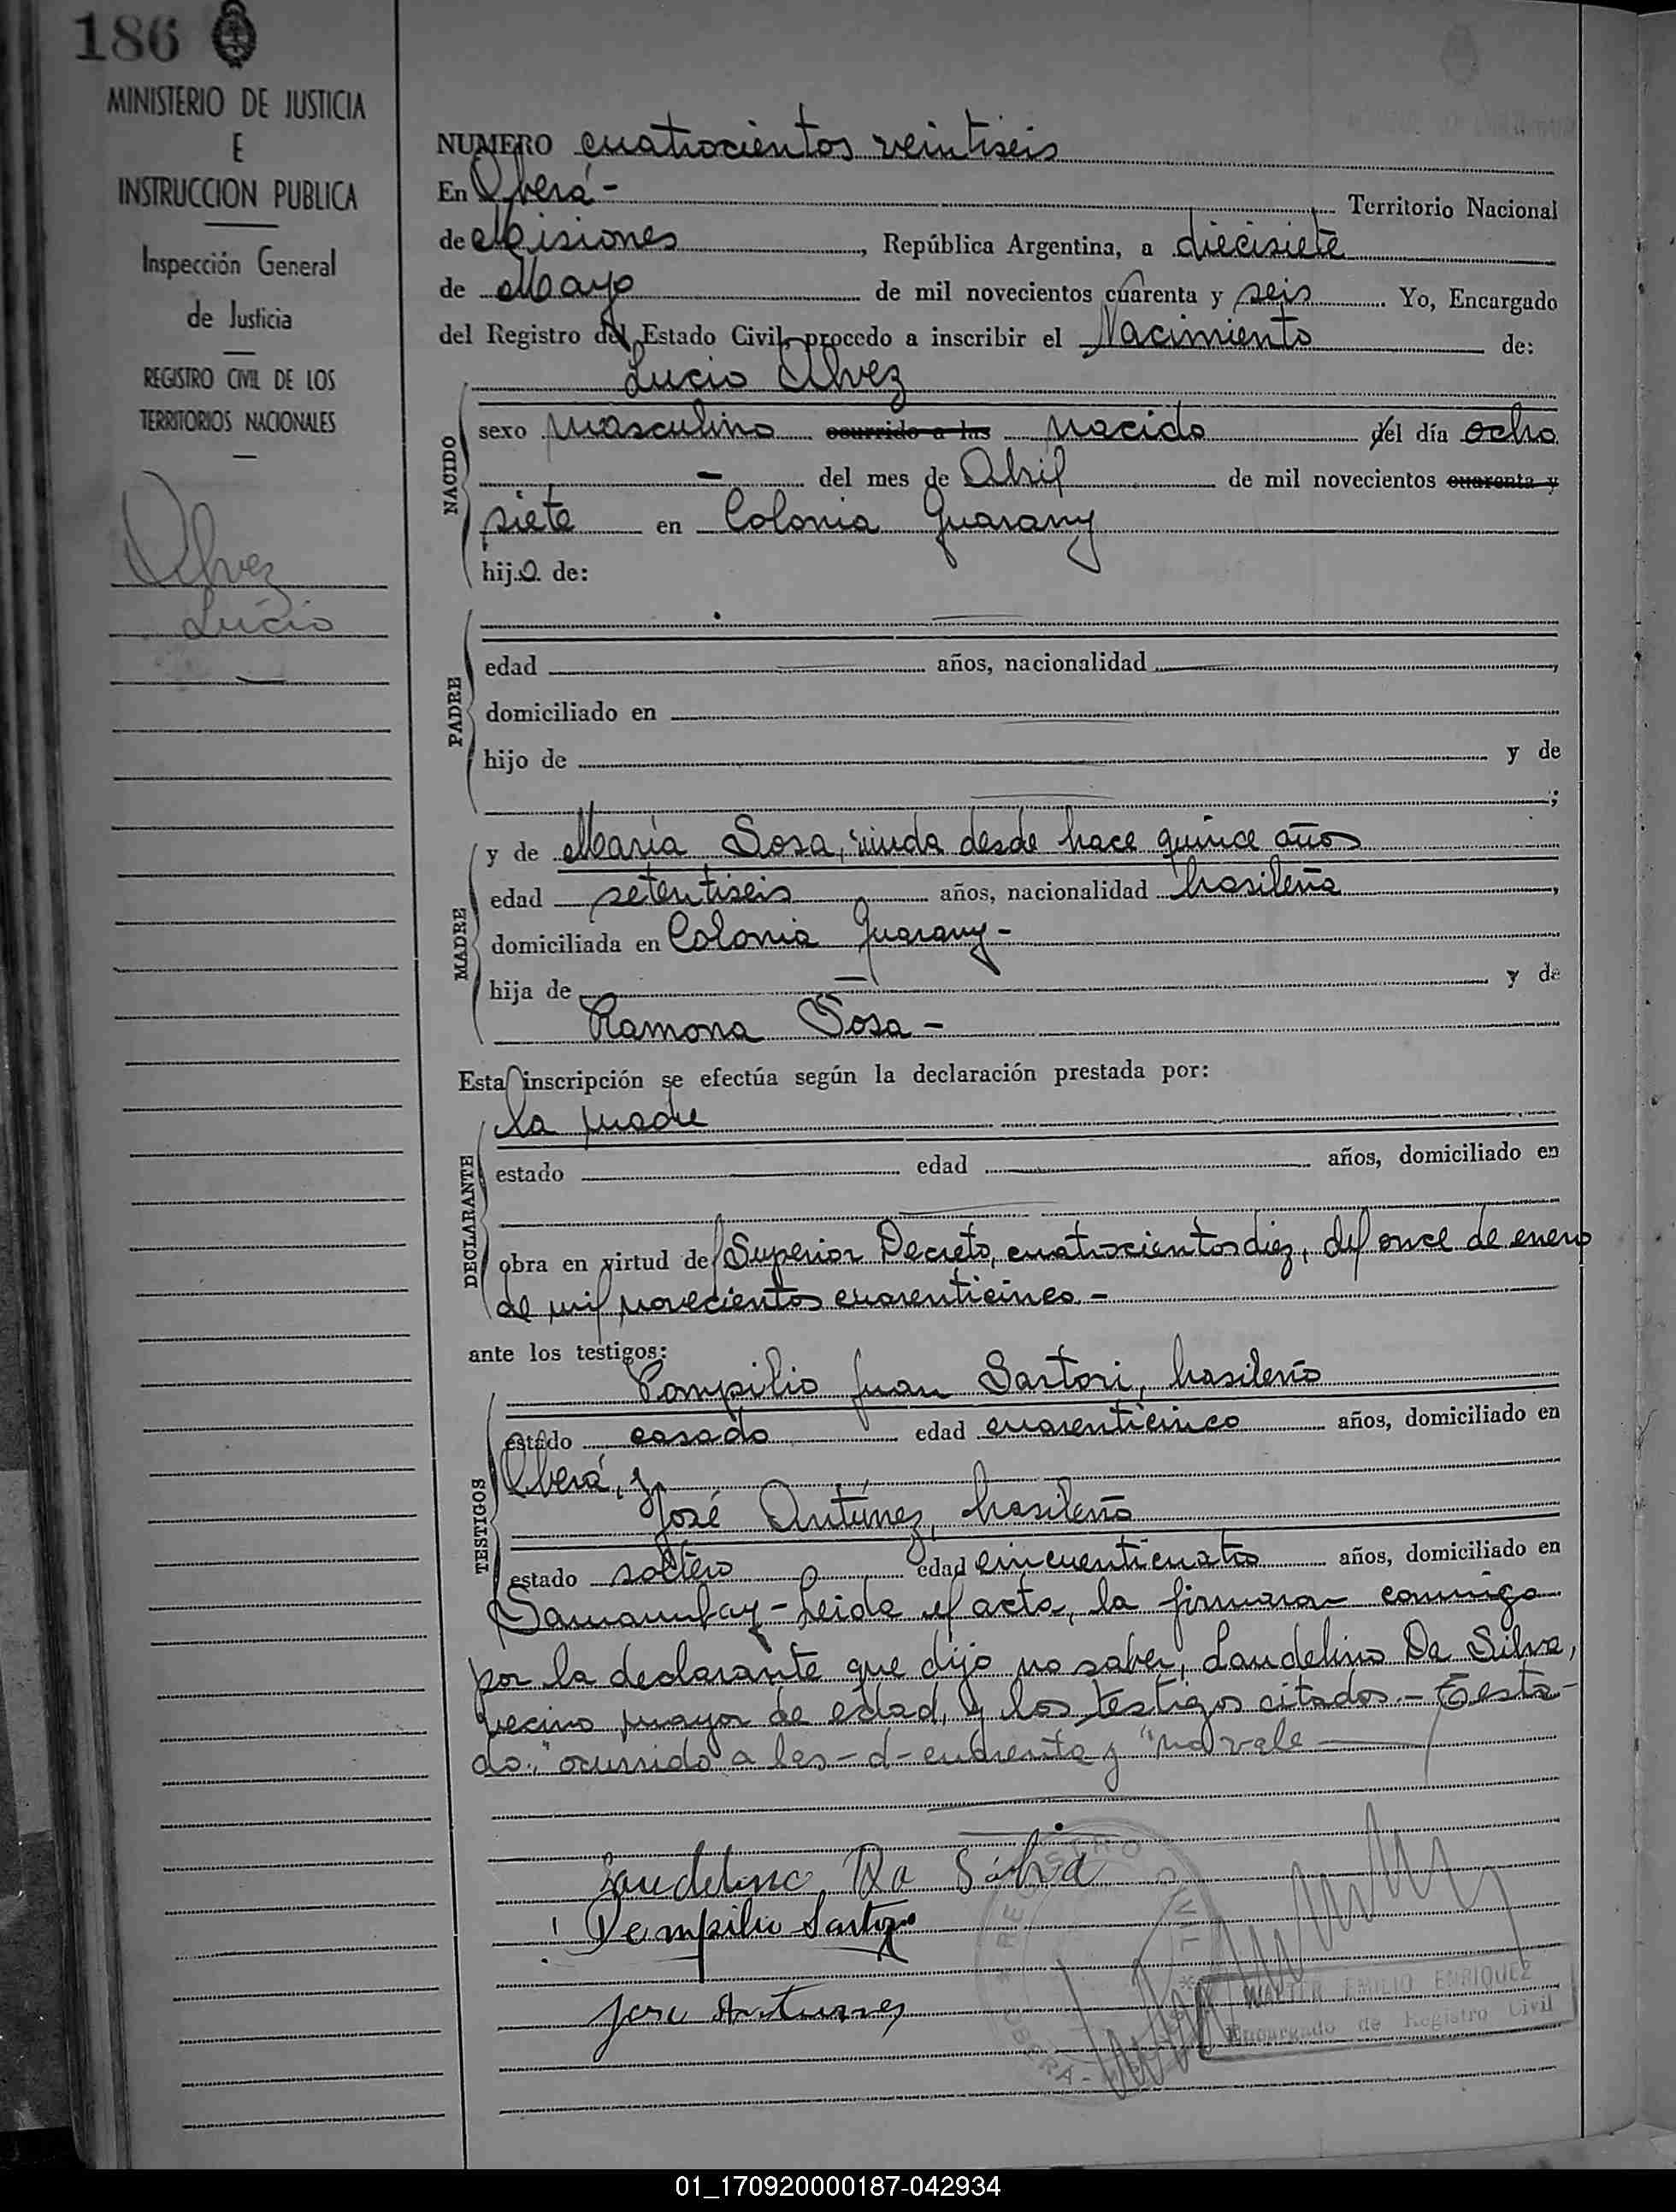 186
MINISTERIO DE JUSTICIA
E
INSTRUCCION PUBLICA
Inspección General
de Justicia
REGISTRO CIVIL DE LOS
TERRITORIOS NACIONALES
Alvez
Lucio
NUMERO cuatrocientos veintiseis
En Oberá - Territorio Nacional
de Misiones, República Argentina, a diecisiete
de Mayo de mil novecientos cuarenta y seis Yo, Encargado
del Registro del Estado Civil, procedo a inscribir el Nacimiento de:
Lucio Alvez
NACIDO
sexo masculino ocurrido a las nacido del día ocho
- del mes de Abril de mil novecientos cuarenta y
siete en Colonia Guarany
hijo de:
PADRE
edad años, nacionalidad
domiciliado en
hijo de y de
;
MADRE
y de María Sosa, viuda desde hace quince años
edad setentiseis años, nacionalidad brasileña,
domiciliada en Colonia Guarany -
hija de — y de
Ramona Sosa -
Esta inscripción se efectúa según la declaración prestada por:
DECLARANTE
la madre
estado edad años, domiciliado en
obra en virtud del Superior Decreto, cuatrocientos diez, del once de enero
de mil novecientos cuarenticinco. -
ante los testigos:
TESTIGOS
Pompilio Juan Sartori, brasileño
estado casado edad cuarenticinco años, domiciliado en
Oberá, y
José Antúnez, brasileño
estado soltero edad cincuenticuatro años, domiciliado en
Samambay - Leida el acta, la firmaron conmigo
por la declarante que dijo no saber, Laudelino Da Silva,
vecino mayor de edad, y los testigos citados. - Testa-
do: "ocurrido a las - d - cuarenta y "no vale
Laudelino Da Silva
Pompilio Sartori
Jose Antunes
REGISTRO CIVIL
OBERA -
WALTER EMILIO ENRIQUEZ
Encargado de Registro Civil
01_170920000187-042934